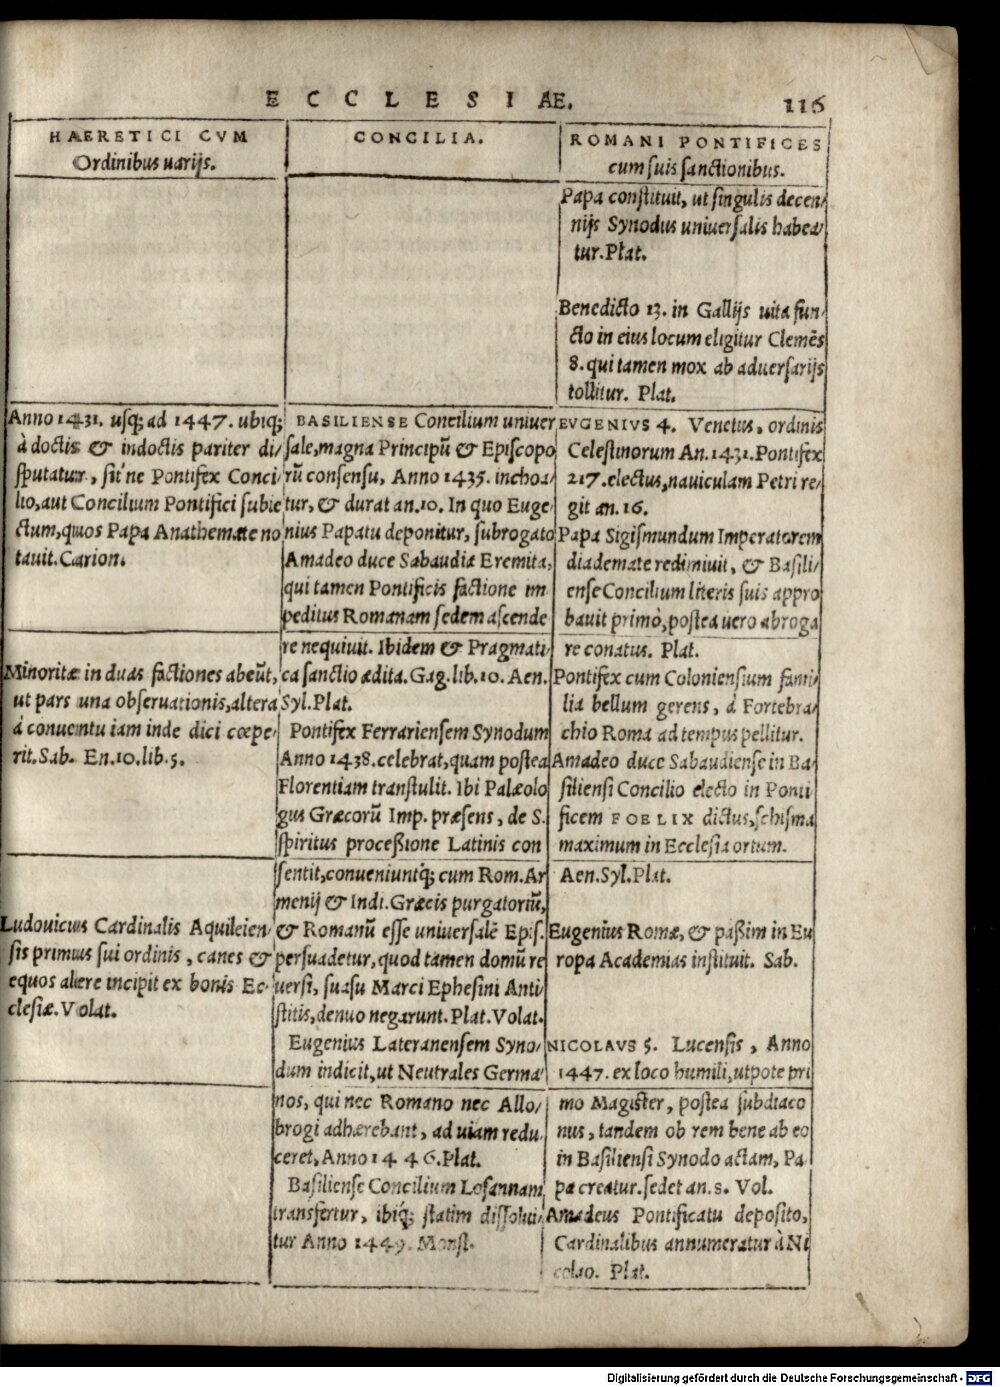 ECCLESIAE. 116
HAERETICI CVM
Ordinibus uarijs.
Anno 1431. usq; ad 1447. ubiq;
à doctis & indoctis pariter di/
sputatur, sit'ne Pontifex Conci/
lio, aut Concilium Pontifici subie
ctum, quos Papa Anathemate no
tauit. Carion.
Minoritæ in duas factiones abeũt,
ut pars una obseruationis, altera
á conuentu iam inde dici cœpe/
rit. Sab. En. 10. lib. 5.
Ludouicus Cardinalis Aquileien/
sis primus sui ordinis, canes &
equos alere incipit ex bonis Ec/
clesiæ. Volat.
CONCILIA.
BASILIENSE Concilium uniuer
sale, magna Principũ & Episcopo
rũ consensu, Anno 1435. inchoa/
tur, & durat an. 10. In quo Euge/
nius Papatu deponitur, subrogato
Amadeo duce Sabaudiæ Eremita,
qui tamen Pontificis factione im
peditus Romanam sedem ascende
re nequiuit. Ibidem & Pragmati/
ca sanctio ædita. Gag. lib. 10. Aen.
Syl. Plat.
Pontifex Ferrariensem Synodum
Anno 1438. celebrat, quam postea
Florentiam transtulit. Ibi Palæolo
gus Græcorũ Imp. præsens, de S.
spiritus proceßione Latinis con
sentit, conueniuntq́; cum Rom. Ar
menij & Indi. Græcis purgatoriũ,
& Romanũ esse uniuersalẽ Epis.
persuadetur, quod tamen domũ re
uersi, suasu Marci Ephesini Anti
stitis, denuo negarunt. Plat. Volat.
Eugenius Lateranensem Syno/
dum indicit, ut Neutrales Germa/
nos, qui nec Romano nec Allo/
brogi adhærebant, ad uiam redu/
ceret, Anno 1446. Plat.
Basiliense Concilium Losannam
transfertur, ibiq́; statim dissolui/
tur Anno 1449. Monst.
ROMANI PONTIFICES
cum suis sanctionibus.
Papa constituit, ut singulis decen/
nijs Synodus uniuersalis habea/
tur. Plat.
Benedicto 13. in Gallijs uita fun/
cto in eius locum eligitur Clemẽs
8. qui tamen mox ab aduersarijs
tollitur. Plat.
EVGENIVS 4. Venetus, ordinis
Celestinorum An. 1431. Pontifex
217. electus, nauiculam Petri re/
git an. 16.
Papa Sigismundum Imperatorem
diademate redimiuit, & Basili/
ense Concilium literis suis appro
bauit primò, postea uero abroga
re conatus. Plat.
Pontifex cum Coloniensium fami/
lia bellum gerens, á Fortebra/
chio Roma ad tempus pellitur.
Amadeo duce Sabaudiense in Ba/
siliensi Concilio electo in Ponti
ficem FOELIX dictus, schisma
maximum in Ecclesia ortum.
Aen. Syl. Plat.
Eugenius Romæ, & paßim in Eu
ropa Academias instituit. Sab.
NICOLAVS 5. Lucensis, Anno
1447. ex loco humili, utpote pri
mo Magister, postea subdiaco
nus, tandem ob rem bene ab eo
in Basiliensi Synodo actam, Pa/
pa creatur. sedet an. 8. Vol.
Amadeus Pontificatu deposito,
Cardinalibus annumeratur à Ni
colao. Plat.
Digitalisierung gefördert durch die Deutsche Forschungsgemeinschaft - DFG